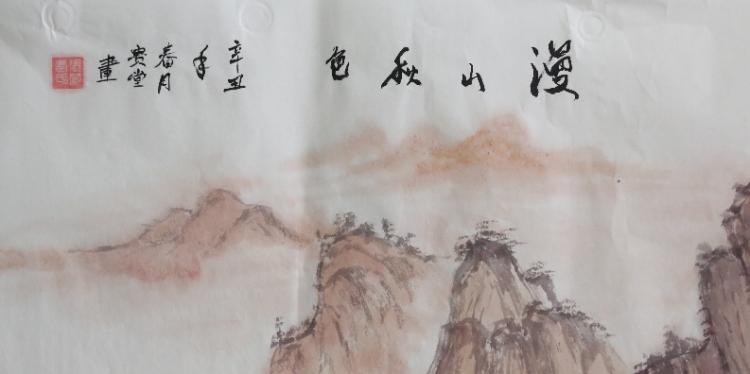 漫山秋色
辛丑
年
春月
堂
畫